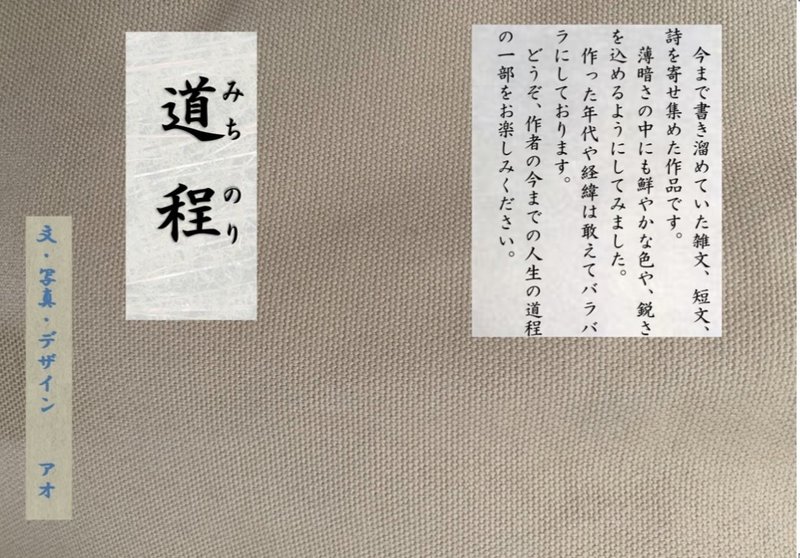 今まで書き溜めていた雑文、短文、
詩を寄せ集めた作品です。
薄暗さの中にも鮮やかな色や、鋭さ
を込めるようにしてみました。
作った年代や経緯は敢えてバラバ
ラにしております。
どうぞ、作者の今までの人生の道程
の一部をお楽しみください。
みちのり
道程
文・写真・デザイン　アオ